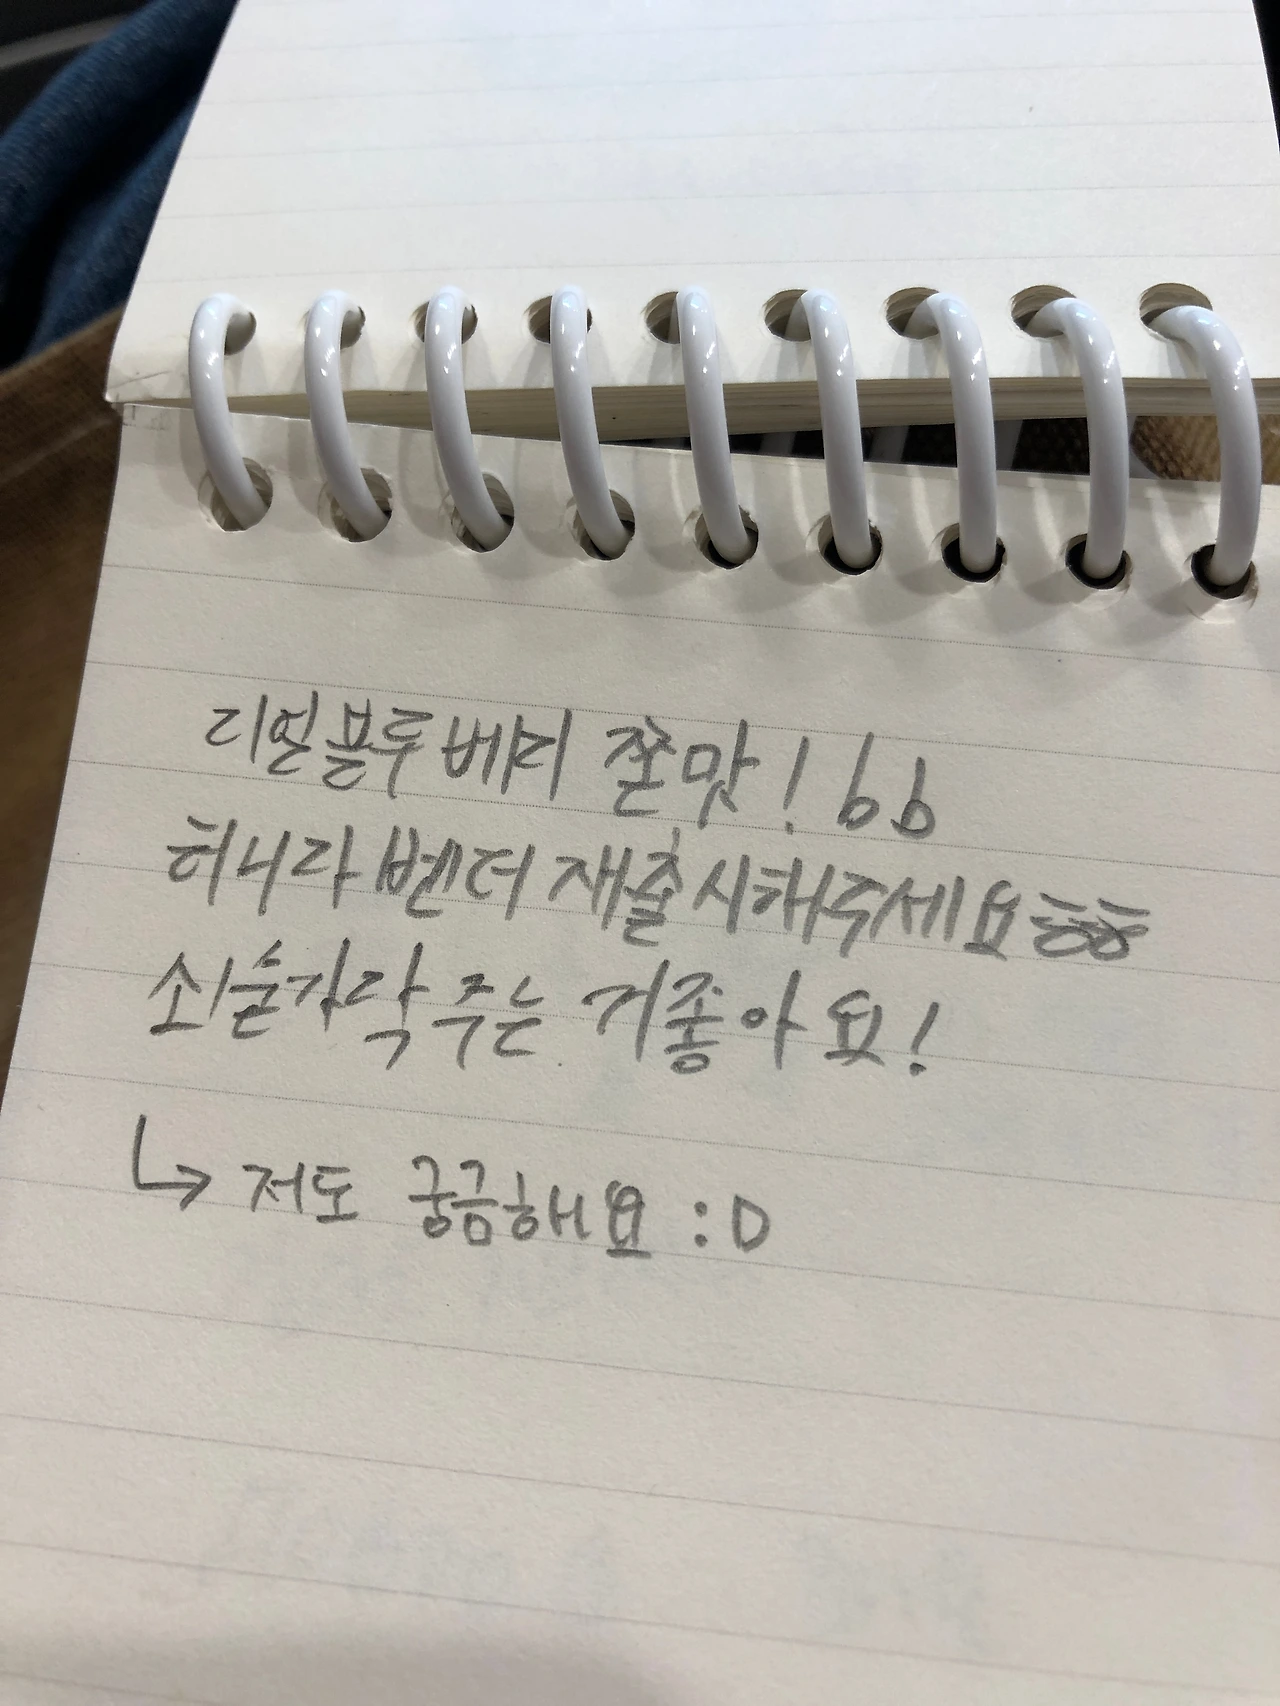 리얼블루베리 존맛! bb
허니라벤더 재출시해주세요ㅎㅎ
쇠숟가락 주는 거좋아요!
↳ 저도 궁금해요 :D